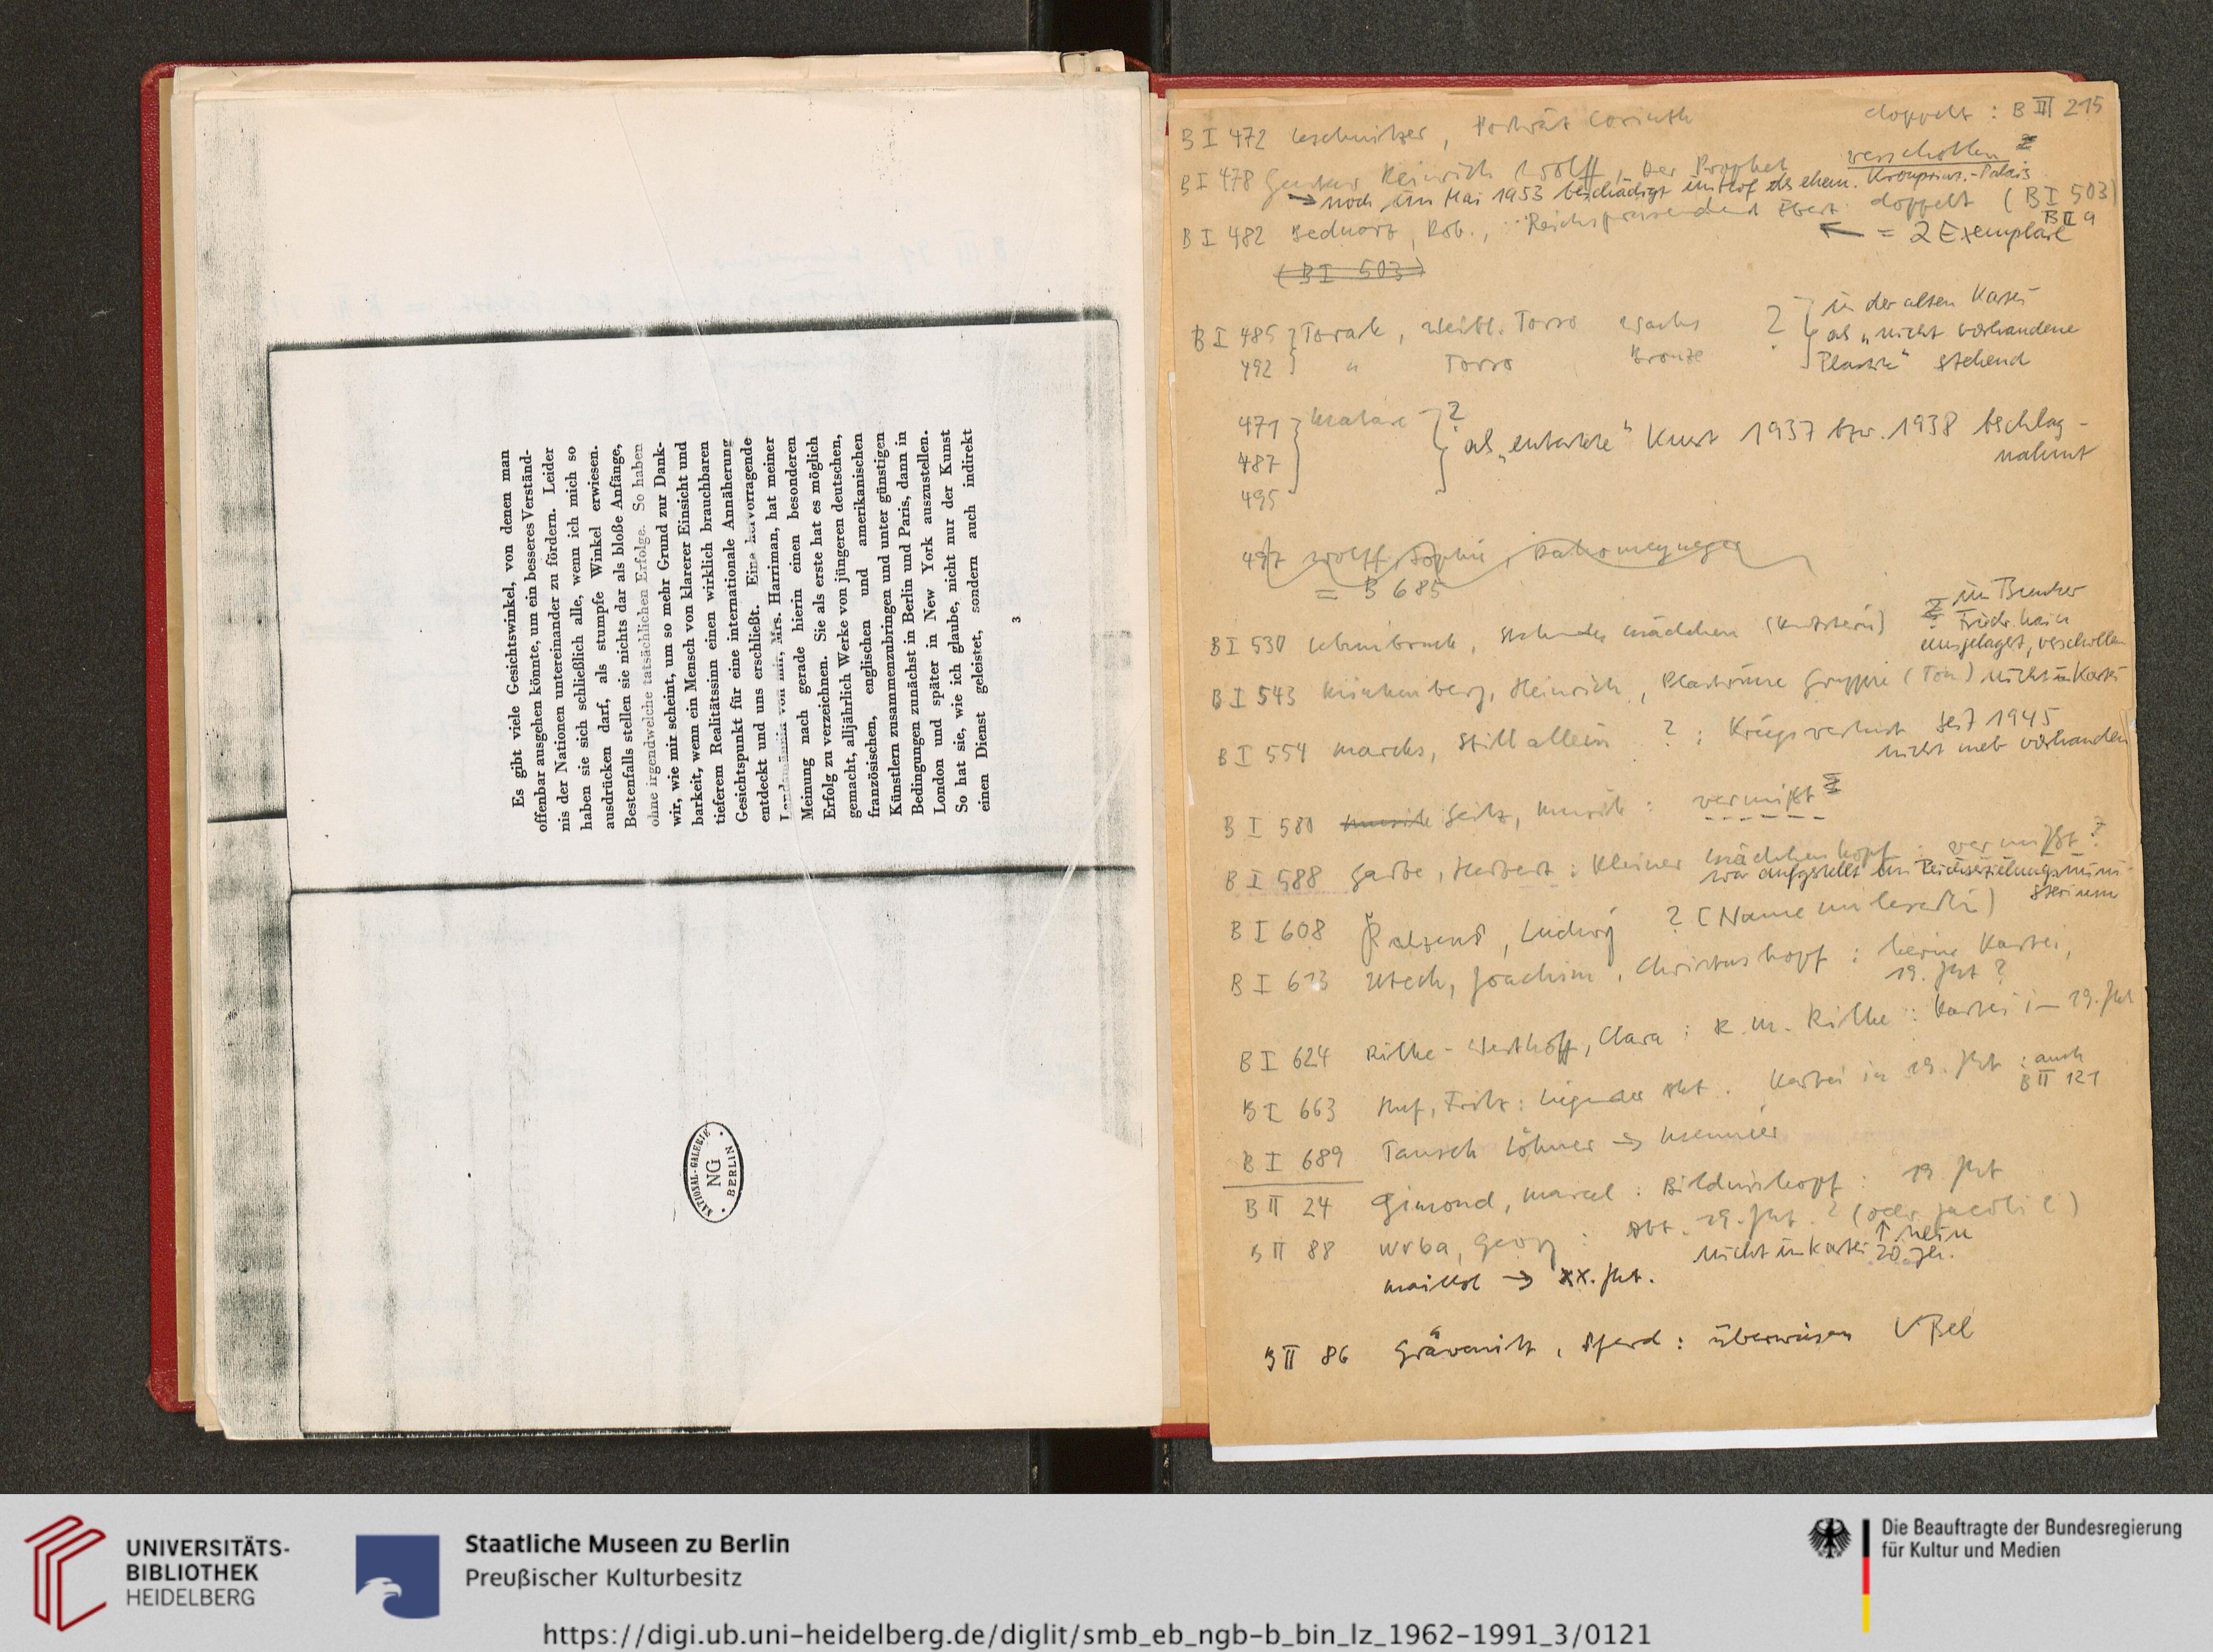 Es gibt viele Gesichtswinkel, von denen man
offenbar ausgehen könnte, um ein besseres Verständ-
nis der Nationen untereinander zu fördern. Leider
haben sie sich schließlich alle, wenn ich mich so
ausdrücken darf, als stumpfe Winkel erwiesen.
Bestenfalls stellen sie nichts dar als bloße Anfänge,
ohne irgendwelche tatsächlichen Erfolge. So haben
wir, wie mir scheint, um so mehr Grund zur Dank-
barkeit, wenn ein Mensch von klarerer Einsicht und
tieferem Realitätssinn einen wirklich brauchbaren
Gesichtspunkt für eine internationale Annäherung
entdeckt und uns erschließt. Eine hervorragende
Landsmännin von mir, Mrs. Harriman, hat meiner
Meinung nach gerade hierin einen besonderen
Erfolg zu verzeichnen. Sie als erste hat es möglich
gemacht, alljährlich Werke von jüngeren deutschen,
französischen, englischen und amerikanischen
Künstlern zusammenzubringen und unter günstigen
Bedingungen zunächst in Berlin und Paris, dann in
London und später in New York auszustellen.
So hat sie, wie ich glaube, nicht nur der Kunst
einen Dienst geleistet, sondern auch indirekt
3
NATIONAL-GALERIE
NG
BERLIN
B I 472 Leschnitzer, Porträt Corinth doppelt : B III 215
B I 478 Gustav Heinrich Wolff, Der Prophet verschollen
→ noch im Mai 1953 beschädigt im Hof des ehem. Kronprinz.-Palais
B I 482 Bednorz, Rob., Reichspräsident Ebert doppelt (B I 503)
B II 9
← = 2 Exemplare
(B I 503)
B I 485 Thorak, Weibl. Torso Wachs ? in der alten Kartei
492 " Torso Bronze als „nicht vorhandene
Plastik" stehend
471 Mataré ?
487 als „entartete" Kunst 1937 bzw. 1938 beschlag-
nahmt
495
497 Wolff, Sophie,
= B 685
B I 530 Lehmbruck, Mädchen (Kunststein) ? im Bunker
Friedr.hain
eingelagert, verschollen
B I 543 Heinrich, Gruppe (Ton) nicht in Kartei
B I 554 Marcks, Still allein ? : Kriegsverlust seit 1945
nicht mehr vorhanden
B I 580 Seitz, : vermißt
B I 588 Garbe, Herbert : Kleiner Mädchenkopf : vermißt ?
war aufgestellt im Reichserziehungsmini-
sterium
B I 608 Ludwig ? (Name unleserlich)
B I 613 Utech, Joachim, Christuskopf : keine Kartei,
19. Jht ?
B I 624 Rilke-Westhoff, Clara : R. M. Rilke : Kartei in 19. Jht
B I 663 Huf, Fritz : Liegender Akt. Kartei in 19. Jht : auch
B II 121
B I 689 Tausch Löhner → Meunier
B II 24 Gimond, Marcel : Bildniskopf : 19 Jht
B II 88 Wrba, Georg : Abt. 19. Jht. ? (oder
↑ nein
nicht in Kartei 20. Jh.
Maillol → XX. Jht.
B II 86 Grävenitz, Pferd : überwiesen V Bel
UNIVERSITÄTS-
BIBLIOTHEK
HEIDELBERG
Staatliche Museen zu Berlin
Preußischer Kulturbesitz
Die Beauftragte der Bundesregierung
für Kultur und Medien
https://digi.ub.uni-heidelberg.de/diglit/smb_eb_ngb-b_bin_lz_1962-1991_3/0121